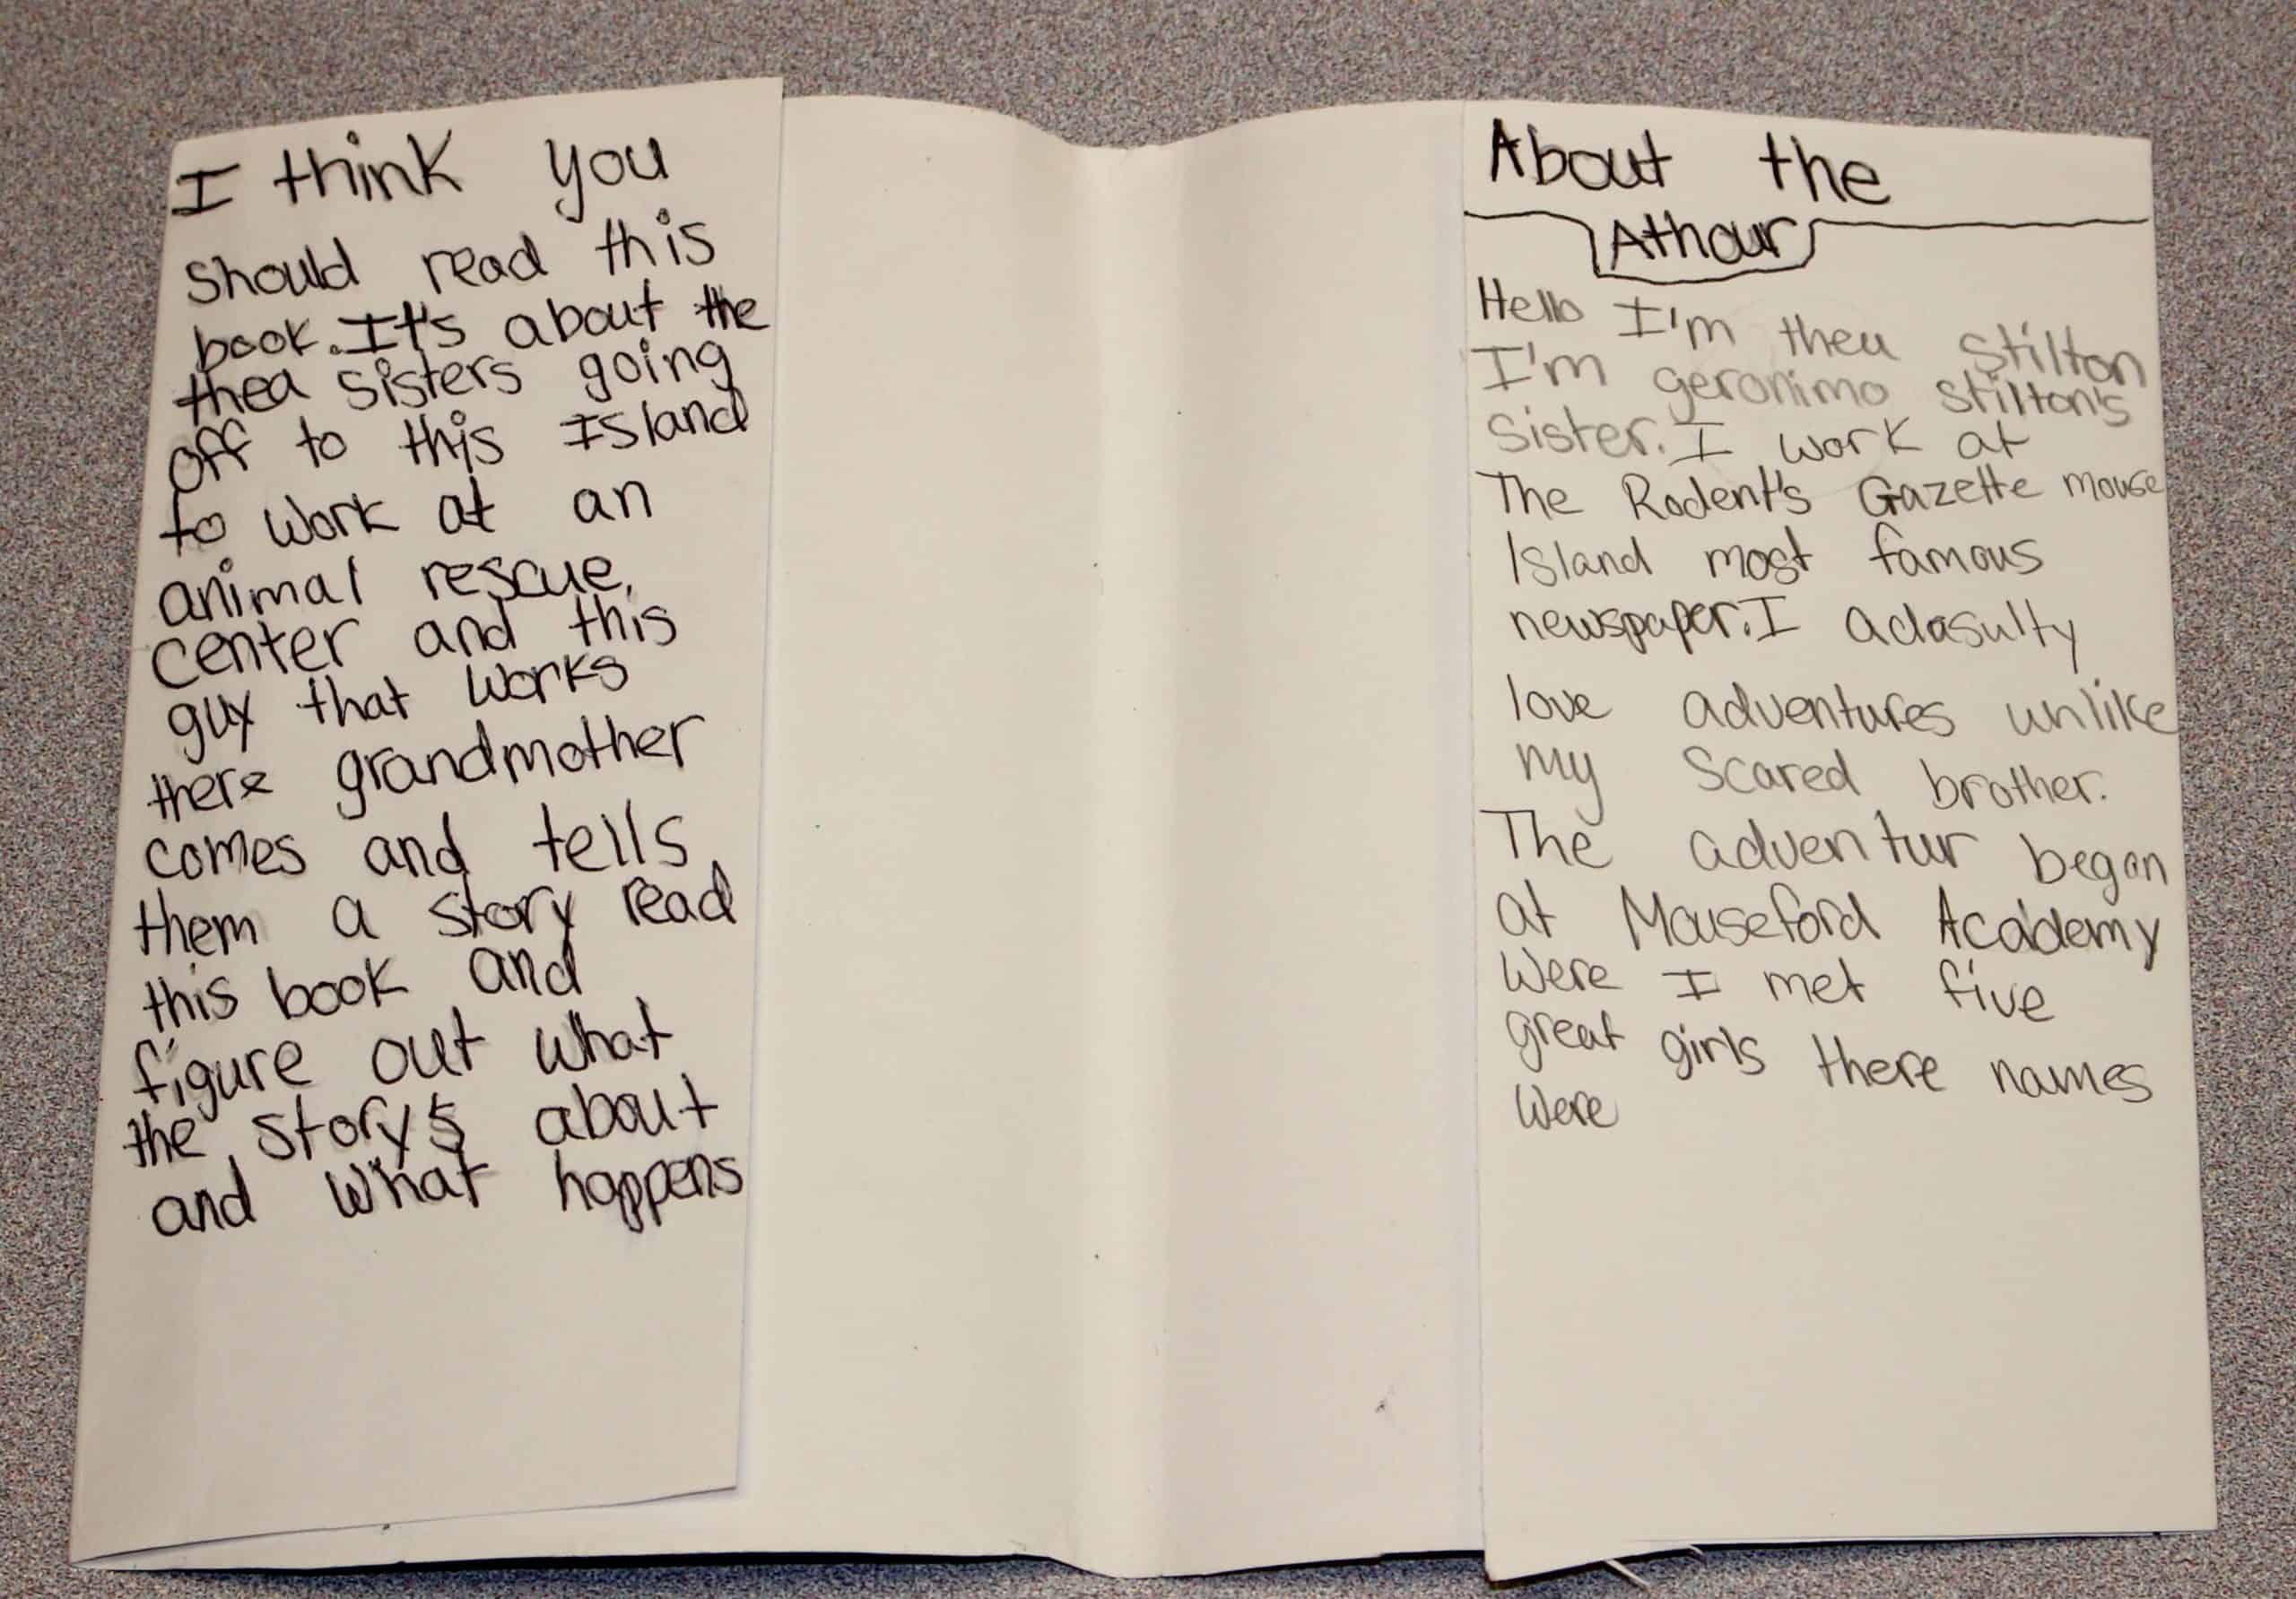 I think you
should read this
book. It's about the
thea sisters going
off to this Island
to work at an
animal rescue.
center and this
guy that works
there grandmother
comes and tells
them a story read
this book and
figure out what
the story's about
and what happens
About the
Athour
Hello I'm thea Stilton
I'm geronimo stilton's
sister. I work at
The Rodent's Gazette mouse
Island most famous
newspaper. I adasulty
love adventures unlike
my scared brother.
The adventur began
at Mouseford Academy
were I met five
great girls there names
were